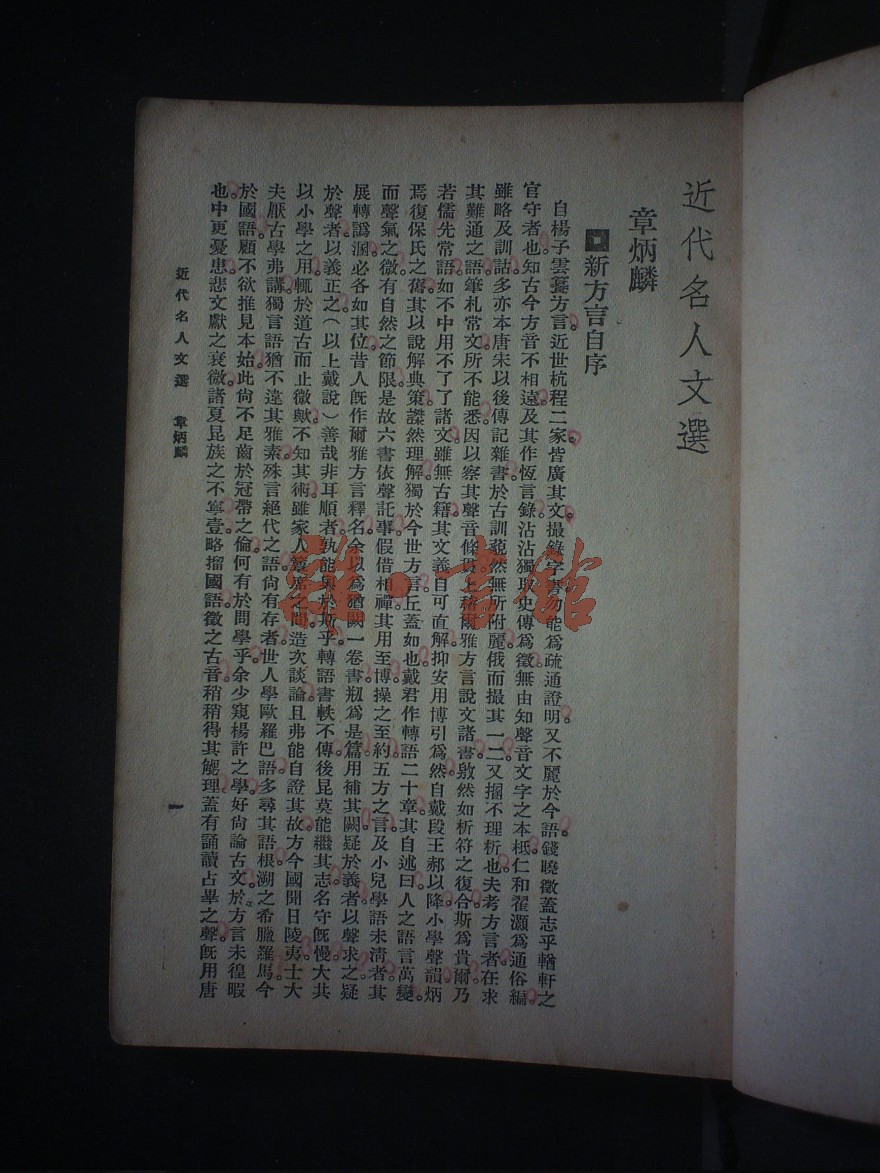 近代名人文選
章炳麟
新方言自序
自楊子雲纂方言。近世杭程二家皆廣其文。撮錄字書勿能爲疏通證明。又不麗於今語。錢曉徵蓋志乎輶軒之
官守者也。知古今方音不相遠。及其作恆言錄。沾沾獨取史傳爲徵。無由知聲音文字之本柢。仁和翟灝爲通俗編。
雖略及訓詁。多亦本唐宋以後傳記雜書。於古訓藐然無所附麗。俄而撮其一二。又搁不理析也。夫考方言者。在求
其難通之語。筆札常文。所不能悉。因以察其聲音條貫。上稽爾雅方言說文諸書。敫然如析符之復合。斯爲貴爾。乃
若儒先常語。如不中用不了了諸文。雖無古籍。其文義自可直解。抑安用博引爲。然自戴段王郝以降。小學聲韻炳
焉。復保氏之舊。其以說解典策。讙然理解。獨於今世方言。丘蓋如也。戴君作轉語二十章。其自述曰。人之語言萬變。
而聲氣之微。有自然之節限。是故六書依聲託事。假借相禪。其用至博。操之至約。五方之言。及小兒學語未清者。其
展轉譌溷。必各如其位。昔人旣作爾雅方言釋名。余以爲猶闕一卷書。剏爲是篇。用補其闕。疑於義者以聲求之。疑
於聲者。以義正之。（以上戴說）善哉非耳順者。孰能與於斯乎。轉語書軼不傳。後昆莫能繼其志。名守旣慢。大共
以小學之用。輒於道古而止。微歟不知其術。雖家人簟席之間。造次談論。且弗能自證其故。方今國聞日陵夷。士大
夫厭古學弗講。獨言語猶不違其雅素。殊言絕代之語。尙有存者。世人學歐羅巴語。多尋其語根。溯之希臘羅馬。今
於國語。顧不欲推見本始。此尙不足齒於冠帶之倫。何有於問學乎。余少窺楊許之學。好尙論古文。於方言未徨暇
也。中更憂患。悲文獻之衰微。諸夏昆族之不寧壹。略㨨國語。徵之古音。稍稍得其鰓理。蓋有誦讀占畢之聲。旣用唐
近代名人文選　章炳麟
一
雜·書館